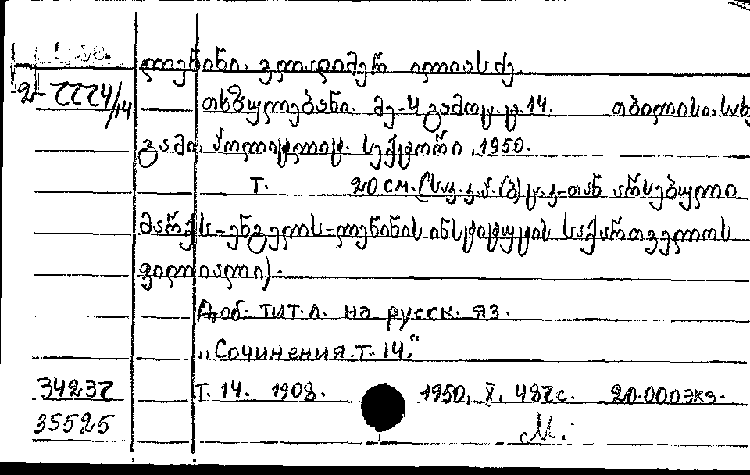 ლენინი. ვლადიმერ ილიას ძე.
2-7774/14
თხზულებანი. მე-4 გამოც. ტ. 14. თბილისი. სახ
გამ. პოლიტლიტ. სექტორი, 1950.
Т. 20 см. (საკ. კ. პ. (ბ) ც. კ-თან არსებული
მარქს-ენგელს-ლენინის ინსტიტუტის საქართველოს
ფილიალი).
Доб. тит. л. на русск. яз.
„Сочинения. т. 14."
34237 Т. 14. 1908. 1950, X, 487 с. 20.000 экз.
35525 М.